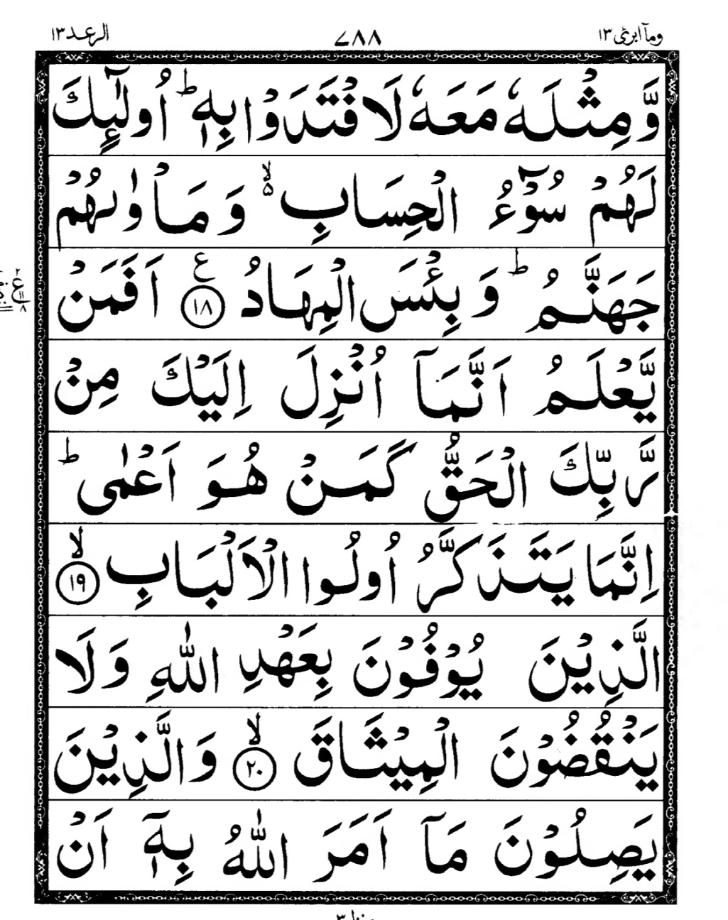 الرعد ١٣ ٧٨٨ ومآ ابرئ ١٣
وَّمِثْلَهٗ مَعَهٗ لَافْتَدَوْا بِهٖ ؕ اُولٰٓئِكَ
لَهُمْ سُوْٓءُ الْحِسَابِ ۙ۬ وَمَاْوٰىهُمْ
جَهَنَّمُ ؕ وَبِئْسَ الْمِهَادُ ﴿۱۸﴾ ع اَفَمَنْ
يَّعْلَمُ اَنَّمَاۤ اُنْزِلَ اِلَيْكَ مِنْ
رَّبِّكَ الْحَقُّ كَمَنْ هُوَ اَعْمٰى ؕ
اِنَّمَا يَتَذَكَّرُ اُولُوا الْاَلْبَابِ ﴿۱۹﴾ ۙ
الَّذِيْنَ يُوْفُوْنَ بِعَهْدِ اللّٰهِ وَلَا
يَنْقُضُوْنَ الْمِيْثَاقَ ﴿۲۰﴾ ۙ وَالَّذِيْنَ
يَصِلُوْنَ مَاۤ اَمَرَ اللّٰهُ بِهٖۤ اَنْ